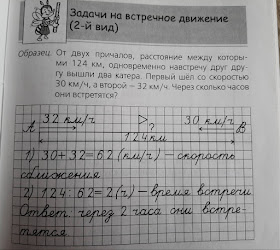 Задачи на встречное движение
(2-й вид)
Образец. От двух причалов, расстояние между которы-
ми 124 км, одновременно навстречу друг дру-
гу вышли два катера. Первый шёл со скоростью
30 км/ч, а второй – 32 км/ч. Через сколько часов
они встретятся?
32 км/ч 30 км/ч
А ? В
124км
1) 30+32=62 (км/ч) – скорость
сближения
2) 124:62=2(ч) – время встречи
Ответ: через 2 часа они встре-
тятся